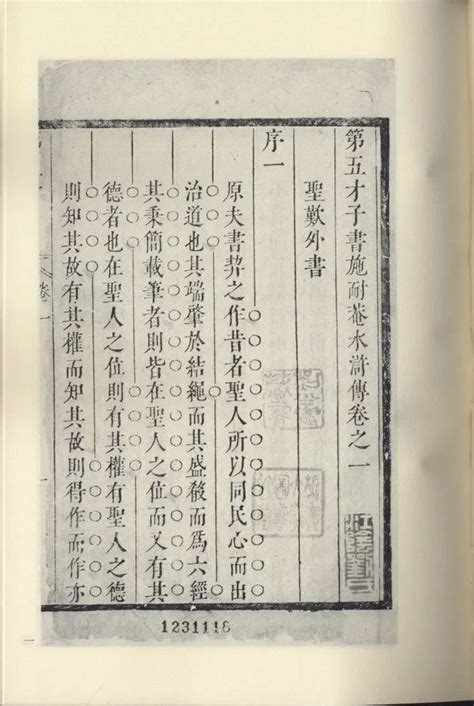 第五才子書施耐菴水滸傳卷之一
聖歎外書
序一
原夫書契之作昔者聖人所以同民心而出
治道也其端肇於結繩而其盛殽而爲六經
其秉簡載筆者則皆在聖人之位而又有其
德者也在聖人之位則有其權有聖人之德
則知其故有其權而知其故則得作而作亦
卷一
一
1231118